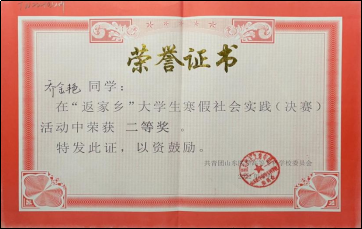 荣誉证书
同学：
在“返家乡”大学生寒假社会实践（决赛）
活动中荣获 二等奖 。
特发此证，以资鼓励。
共青团山东 学校委员会